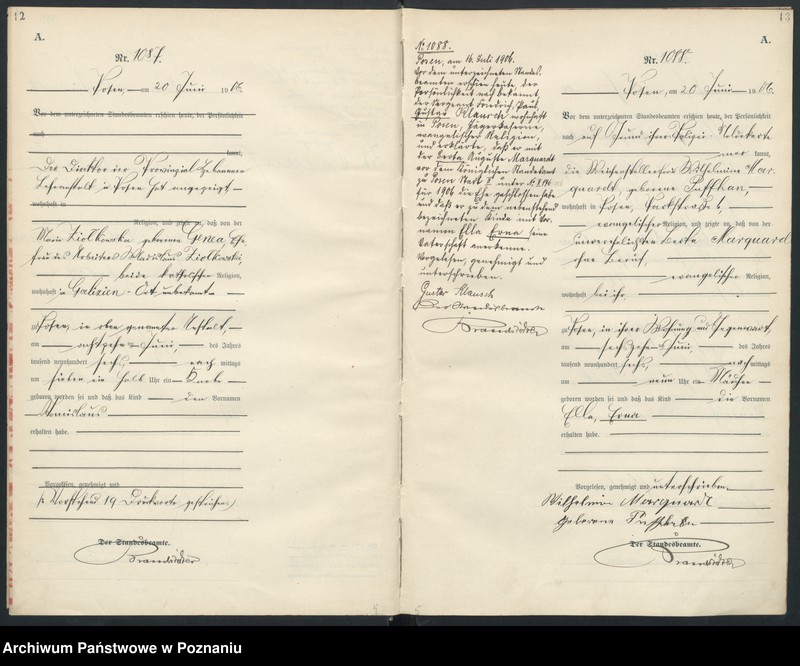 12
A.
Nr. 1087.
Posen, am 20 Juni 1906.
Vor dem unterzeichneten Standesbeamten erschien heute, der Persönlichkeit
nach
kannt,
Der Direktor der Provinzial Hebammen
Lehranstalt in Posen hat angezeigt,
wohnhaft in
Religion, und zeigte an, daß von der
Maria Ziolkowska geborene Ehe
frau des Arbeiters Wladislaus Ziolkowski,
beide katholischer Religion,
wohnhaft in Galizien - Ort unbekannt
zu Posen, in oben genannter Anstalt,
am achtzehn Juni, des Jahres
tausend neunhundert sechs, nach mittags
um sieben ein halb Uhr ein Knabe
geboren worden sei und daß das Kind den Vornamen
Stanislaus
erhalten habe.
Vorgelesen, genehmigt und
(: Vorstehend 19 Druckworte gestrichen.)
Der Standesbeamte.
13
A.
No 1088.
Posen, am 16. Juli 1906.
Vor dem unterzeichneten Standes-
beamten erschien heute, der
Persönlichkeit nach bekannt,
der Sergeant Friedrich, Paul
Gustav Klausch wohnhaft
in Posen, Jägerkaserne,
evangelischer Religion,
und erklärte, daß er mit
der Berta Auguste Marquardt
vor dem Königlichen Standesamt
zu Posen Stadt unter No
für 1906 die Ehe geschlossen habe
und daß er zu dem nebenstehend
bezeichneten Kinde mit Vor-
namen Ella Erna seine
Vaterschaft anerkenne.
Vorgelesen, genehmigt und
unterschrieben.
Gustav Klausch
Der Standesbeamte
Nr. 1088.
Posen, am 20 Juni 1906.
Vor dem unterzeichneten Standesbeamten erschien heute, der Persönlichkeit
nach auf Grund ihrer Polizei Meldekarte
kannt,
die Wilhelmine Mar-
quardt, geborene
wohnhaft in Posen,
evangelischer Religion, und zeigte an, daß von der
unverehelichten Berta Marquardt
ohne Beruf,
evangelischer Religion,
wohnhaft bei ihr,
zu Posen, in ihrer Wohnung und Gegenwart,
am sechzehn Juni, des Jahres
tausend neunhundert sechs, nach mittags
um neun Uhr ein Mädchen
geboren worden sei und daß das Kind die Vornamen
Ella, Erna
erhalten habe.
Vorgelesen, genehmigt und unterschrieben.
Wilhelmin Marquardt
geborene
Der Standesbeamte.
Archiwum Państwowe w Poznaniu